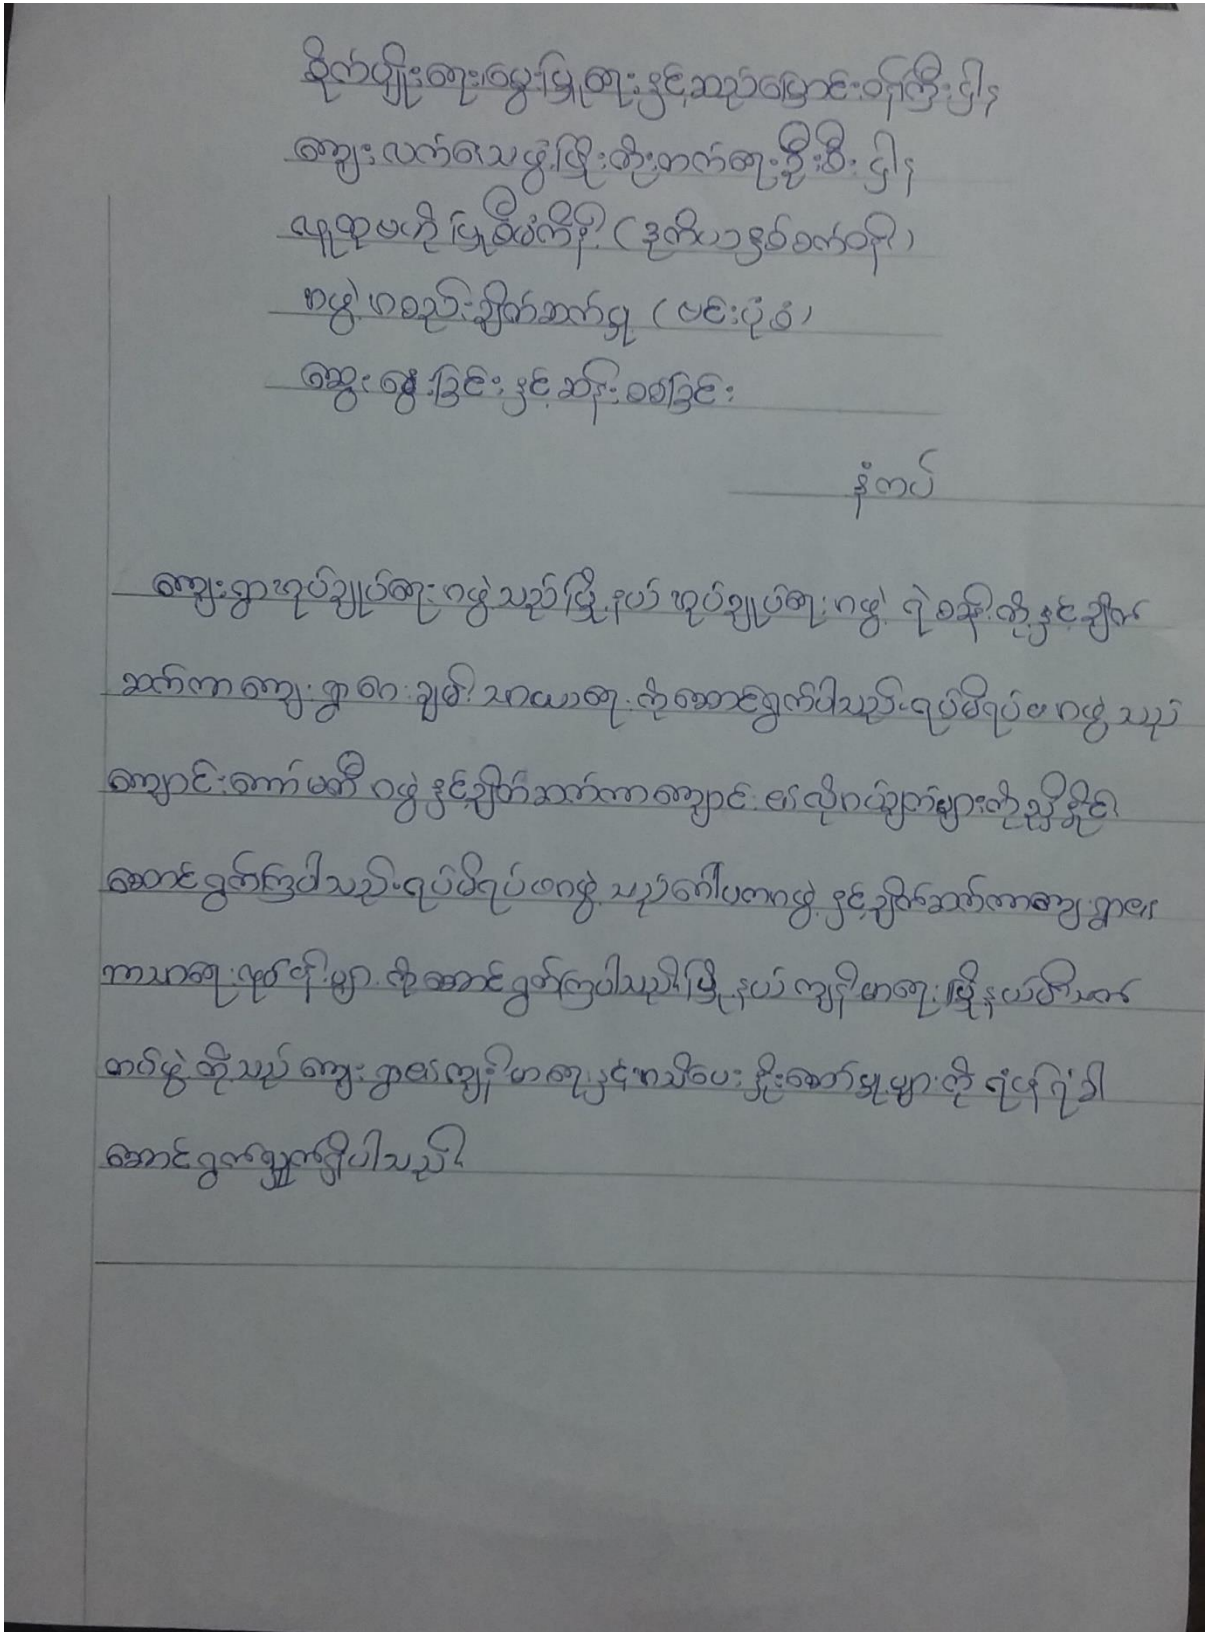 စိုက်ပျိုးရေး၊မွေးမြူရေးနှင့်ဆည်မြောင်းဝန်ကြီးဌာန
ကျေးလက်ဒေသဖွံ့ဖြိုးတိုးတက်ရေးဦးစီးဌာန
လူထုဗဟိုပြုစီမံကိန်း (ဒုတိယနှစ်စက်ဝန်း)
အဖွဲ့အစည်းချိတ်ဆက်မှု (ဗင်းပုံစံ)
ဆွေးနွေးခြင်းနှင့်ဆန်းစစ်ခြင်း
နံကပ်
ကျေးရွာအုပ်ချုပ်ရေးအဖွဲ့သည်မြို့နယ်အုပ်ချုပ်ရေးအဖွဲ့ ရဲစခန်းတို့နှင့်ချိတ်
ဆက်ကာကျေးရွာအေးချမ်းသာယာရေးကိုဆောင်ရွက်ပါသည်။ရပ်မိရပ်ဖအဖွဲ့သည်
ကျောင်းကော်မတီအဖွဲ့နှင့်ချိတ်ဆက်ကာကျောင်း၏လိုအပ်ချက်များကိုညှိနှိုင်း
ဆောင်ရွက်ကြပါသည်။ရပ်မိရပ်ဖအဖွဲ့သည်ဂေါပကအဖွဲ့နှင့်ချိတ်ဆက်ကာကျေးရွာ၏
ဘာသာရေးလုပ်ငန်းများကိုဆောင်ရွက်ကြပါသည်။မြို့နယ်ကျန်းမာရေး၊မြို့နယ်မီးသတ်
တပ်ဖွဲ့တို့သည်ကျေးရွာ၏ကျန်းမာရေးနှင့်အသိပေးနှိုးဆော်မှုများကို ရံဖန်ရံခါ
ဆောင်ရွက်လျှက်ရှိပါသည်။